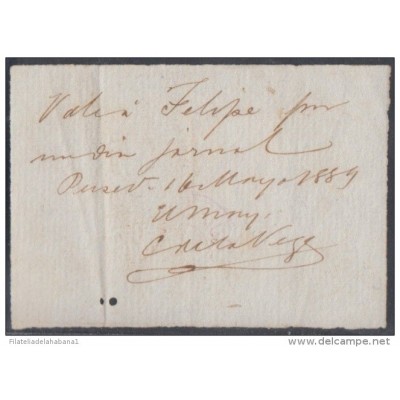 Vale á Felipe por
un dia jornal
16 Mayo 1889
El May.
C de la Vega
Filateliadelahabana1
delcampe.net